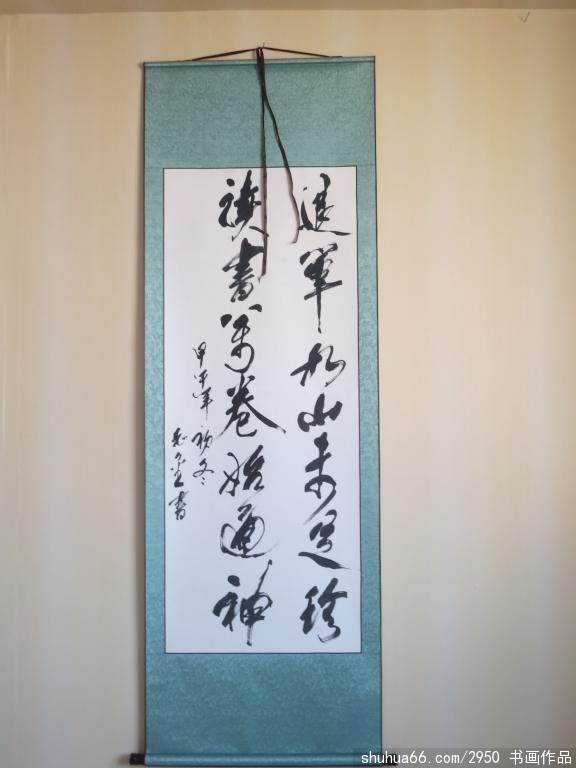 退筆如山未足珍
讀書萬卷始通神
甲午年初冬
書
shuhua66.com/2950 书画作品